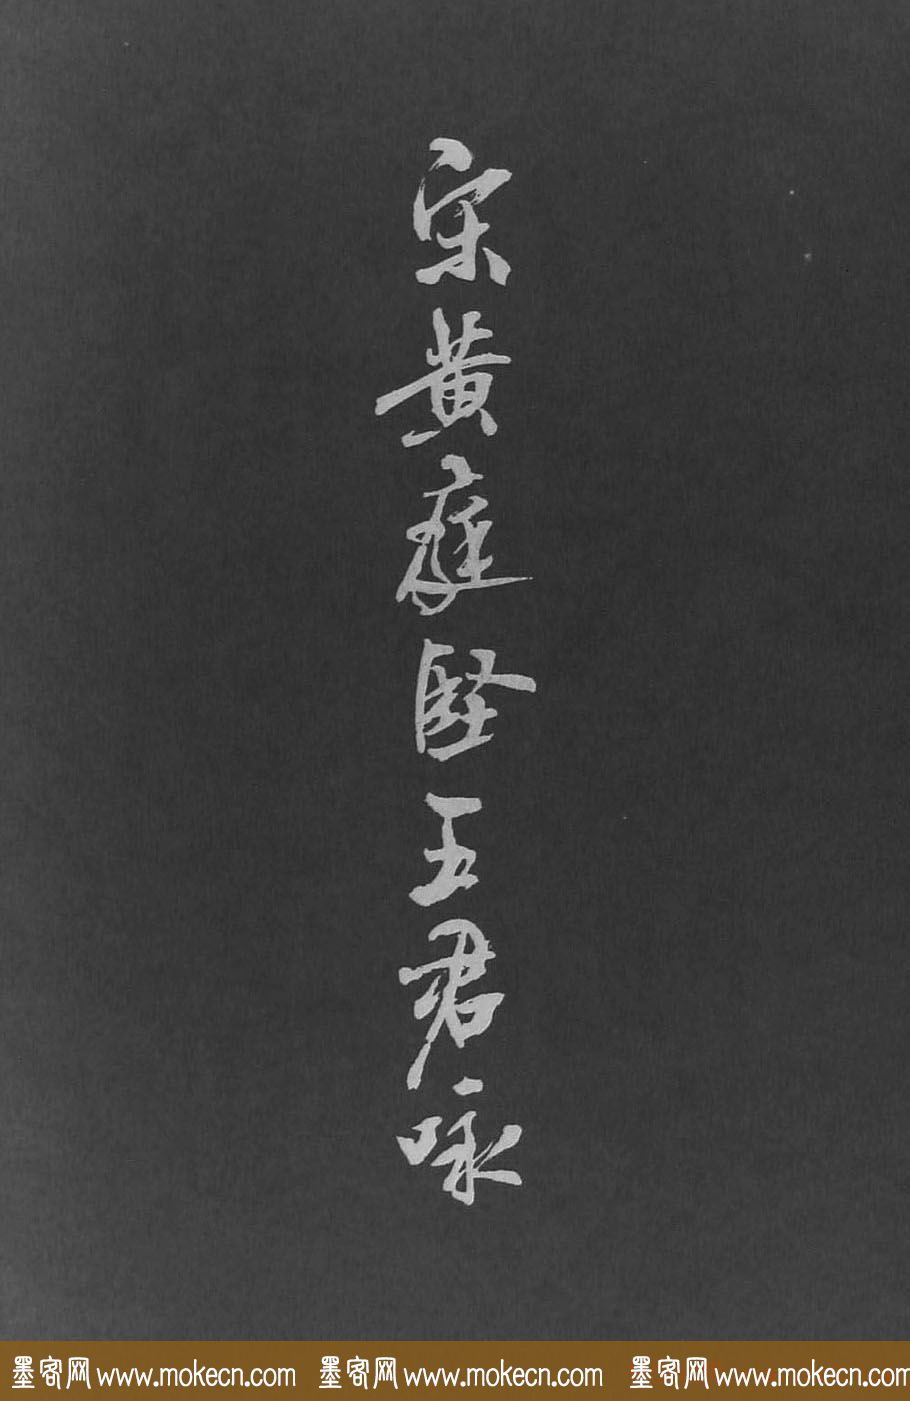 宋黄庭堅五君咏
墨客网 www.mokecn.com 墨客网 www.mokecn.com 墨客网 www.mokecn.com